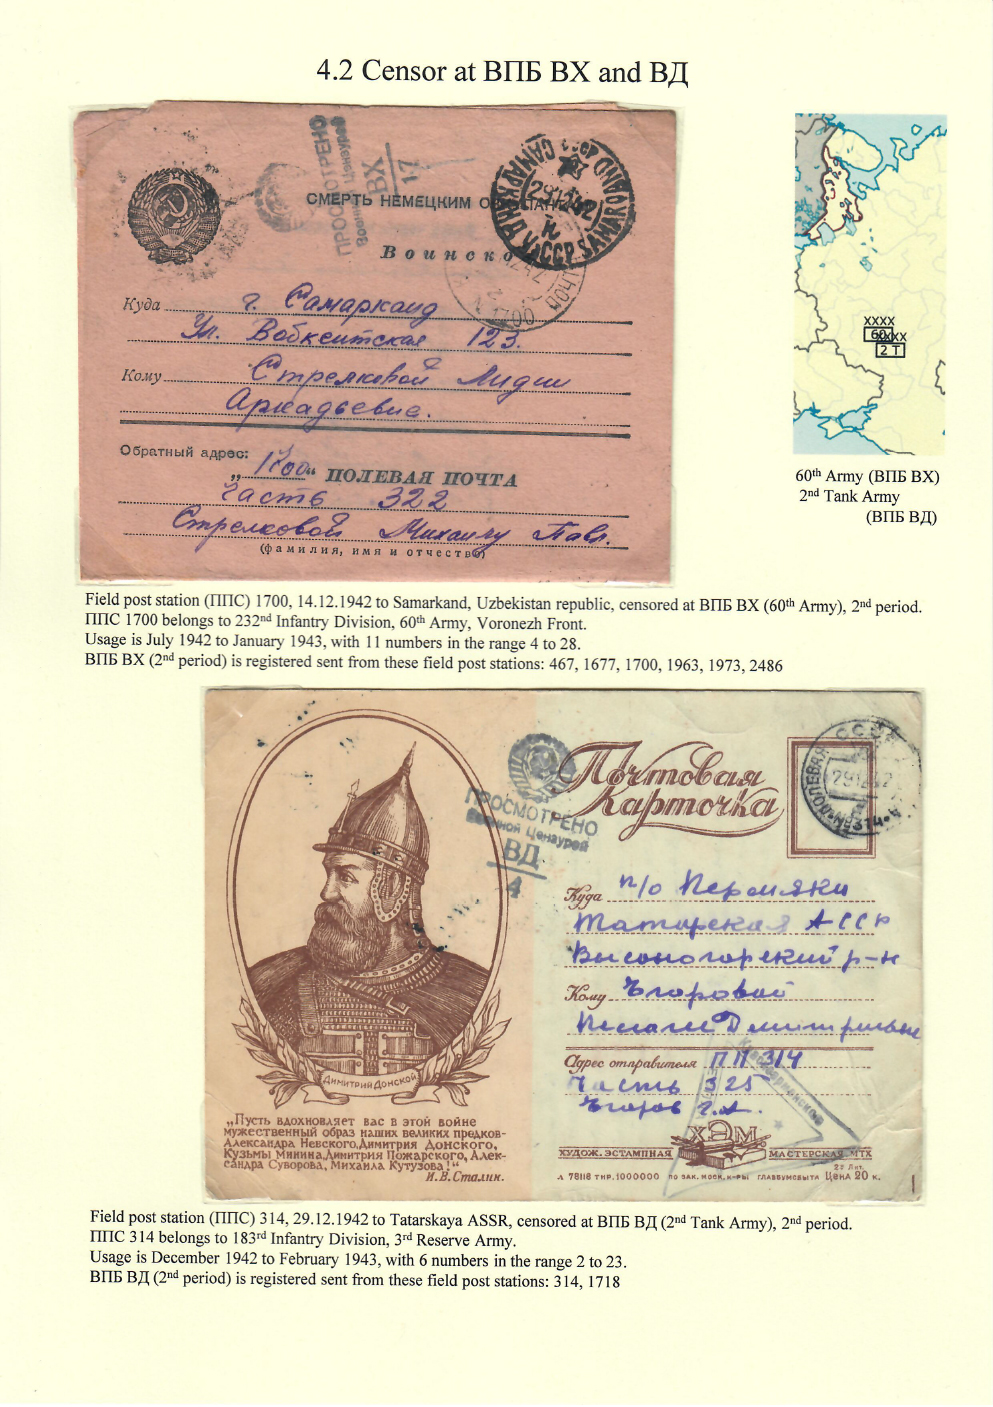 4.2 Censor at ВПБ ВХ and ВД
ПРОСМОТРЕНО
Военной Цензурой
ВХ
17
СМЕРТЬ НЕМЕЦКИМ
Воинско
САМАРКАНД УзССР SAMARQAND
29 12 42
1700
Куда г. Самарканд
Ул. Вобкентская 123.
Кому Стрелковой Лидии
Аркадьевне.
Обратный адрес:
„1700“ ПОЛЕВАЯ ПОЧТА
часть 322
Стрелковой Михаилу Павл.
(фамилия, имя и отчество)
XXXX
60
XXXX
2 T
60th Army (ВПБ ВХ)
2nd Tank Army
(ВПБ ВД)
Field post station (ППС) 1700, 14.12.1942 to Samarkand, Uzbekistan republic, censored at ВПБ ВХ (60th Army), 2nd period.
ППС 1700 belongs to 232nd Infantry Division, 60th Army, Voronezh Front.
Usage is July 1942 to January 1943, with 11 numbers in the range 4 to 28.
ВПБ ВХ (2nd period) is registered sent from these field post stations: 467, 1677, 1700, 1963, 1973, 2486
Почтовая
Карточка
СССР
ПОЛЕВАЯ
29 12 42
314
ПРОСМОТРЕНО
Военной Цензурой
ВД
4
Куда п/о Пермяки
Татарская АССР
Высокогорский р-н
Кому Егоровой
Пелагее Дмитриевне
Адрес отправителя ПП 314
Часть 325
Егоров Г.А.
Красноармейское
Димитрий Донской
„Пусть вдохновляет вас в этой войне
мужественный образ наших великих предков-
Александра Невского, Димитрия Донского,
Кузьмы Минина, Димитрия Пожарского, Алек-
сандра Суворова, Михаила Кутузова!“
И.В. Сталин.
ХЭМ
ХУДОЖ. ЭСТАМПНАЯ МАСТЕРСКАЯ МТХ
Л 78116 ТИР. 1000000 ПО ЗАК. МОСК. К-РЫ ГЛАВБУМСБЫТА ЦЕНА 20 к.
Field post station (ППС) 314, 29.12.1942 to Tatarskaya ASSR, censored at ВПБ ВД (2nd Tank Army), 2nd period.
ППС 314 belongs to 183rd Infantry Division, 3rd Reserve Army.
Usage is December 1942 to February 1943, with 6 numbers in the range 2 to 23.
ВПБ ВД (2nd period) is registered sent from these field post stations: 314, 1718